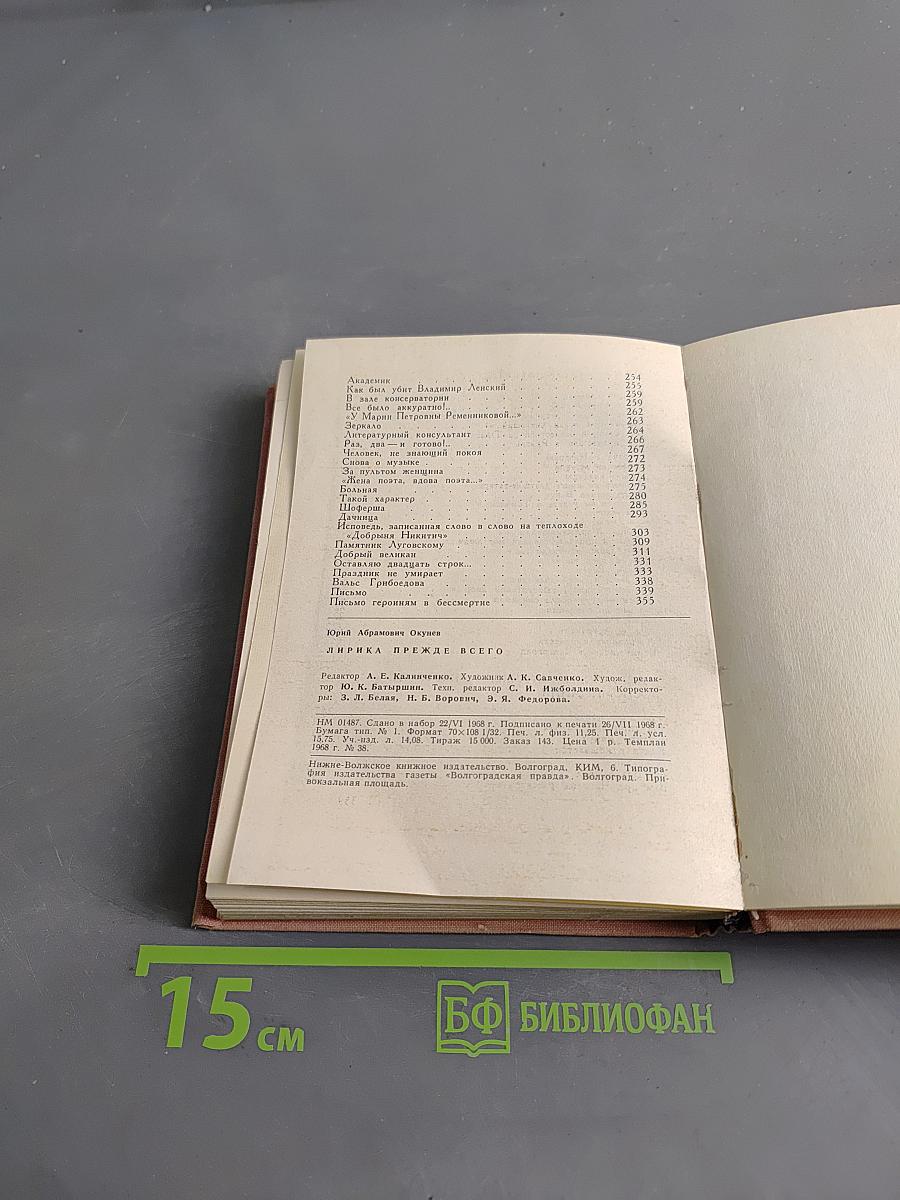 Академик . . . . . . . . . . . 254
Как был убит Владимир Ленский . . . . . 255
В зале консерватории . . . . . . . . 259
Все было аккуратно!.. . . . . . . . . 259
«У Марии Петровны Ременниковой...» . . . . 262
Зеркало . . . . . . . . . . . 263
Литературный консультант . . . . . . . 264
Раз, два — и готово!.. . . . . . . . . 266
Человек, не знающий покоя . . . . . . . 267
Снова о музыке . . . . . . . . . . 272
За пультом женщина . . . . . . . . . 273
«Жена поэта, вдова поэта...» . . . . . . 274
Больная . . . . . . . . . . . 275
Такой характер . . . . . . . . . . 280
Шоферша . . . . . . . . . . . 285
Дачница . . . . . . . . . . . 293
Исповедь, записанная слово в слово на теплоходе
«Добрыня Никитич» . . . . . . . . 303
Памятник Луговскому . . . . . . . . . 309
Добрый великан . . . . . . . . . . 311
Оставляю двадцать строк... . . . . . . . 331
Праздник не умирает . . . . . . . . . 333
Вальс Грибоедова . . . . . . . . . 338
Письмо . . . . . . . . . . . 339
Письмо героиням в бессмертие . . . . . . 355
Юрий Абрамович Окунев
ЛИРИКА ПРЕЖДЕ ВСЕГО
Редактор А. Е. Калинченко. Художник А. К. Савченко. Худож. редак-
тор Ю. К. Батыршин. Техн. редактор С. И. Ижболдина. Корректо-
ры: З. Л. Белая, Н. Б. Ворович, Э. Я. Федорова.
НМ 01487. Сдано в набор 22/VI 1968 г. Подписано к печати 26/VII 1968 г.
Бумага тип. № 1. Формат 70×108 1/32. Печ. л. физ. 11,25. Печ. л. усл.
15,75. Уч.-изд. л. 14,08. Тираж 15 000. Заказ 143. Цена 1 р. Темплан
1968 г. № 38.
Нижне-Волжское книжное издательство. Волгоград, КИМ, 6. Типогра-
фия издательства газеты «Волгоградская правда». Волгоград. При-
вокзальная площадь.
15 см
БФ БИБЛИОФАН